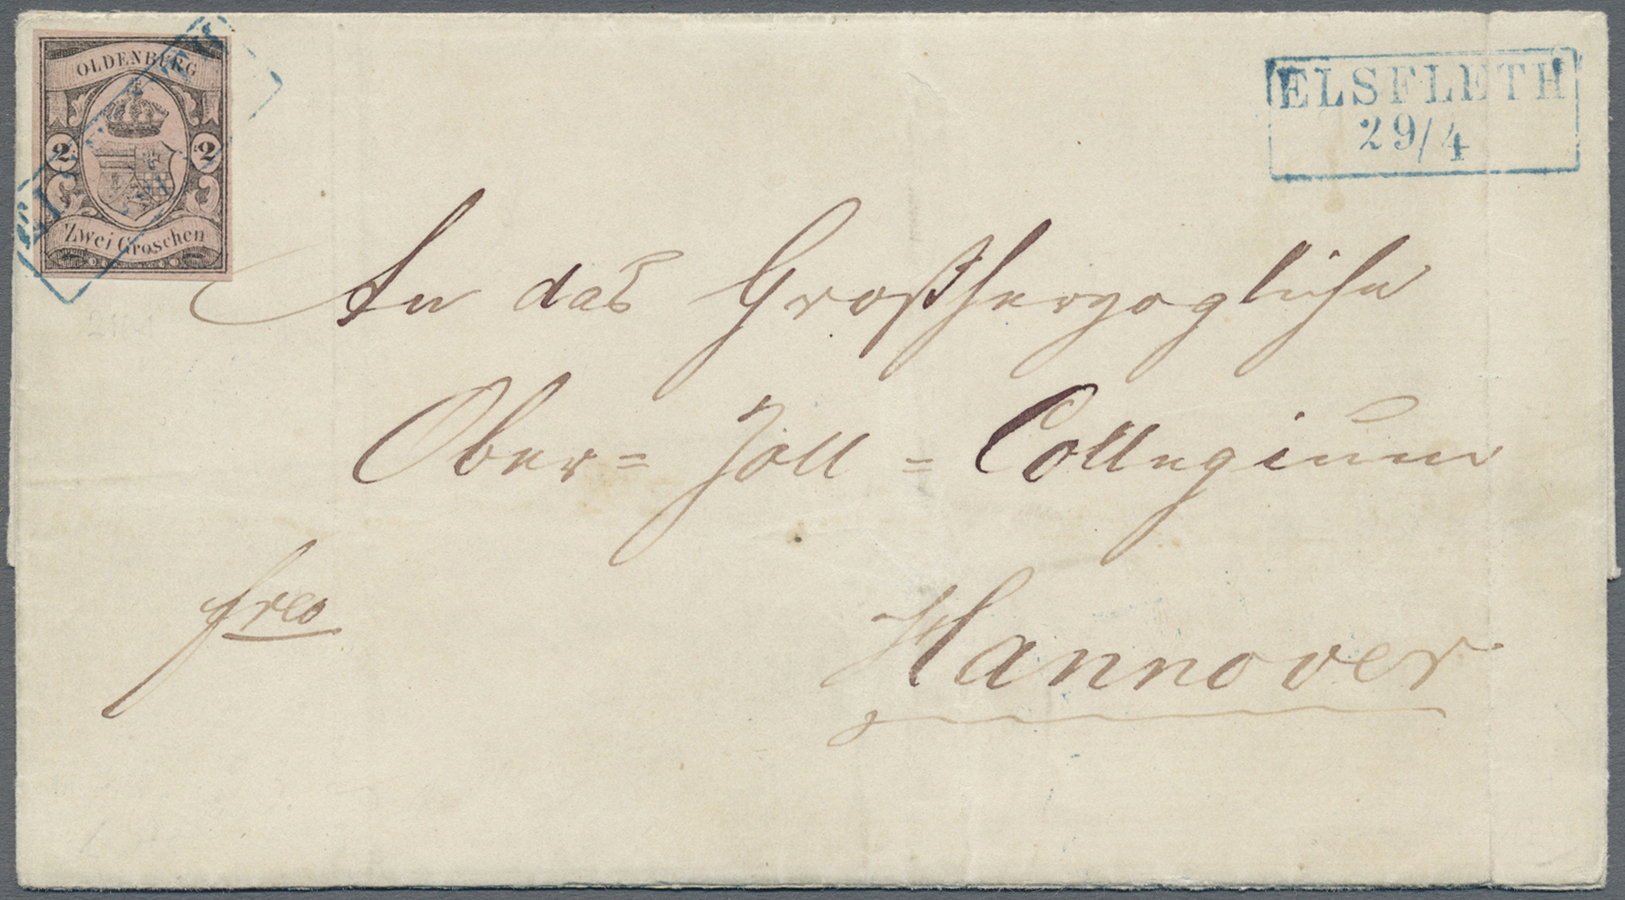 OLDENBURG
2 2
Zwei Groschen
ELSFLETH
29/4
An das Großherzogliche
Ober= Zoll = Collegium
frco
Hannover